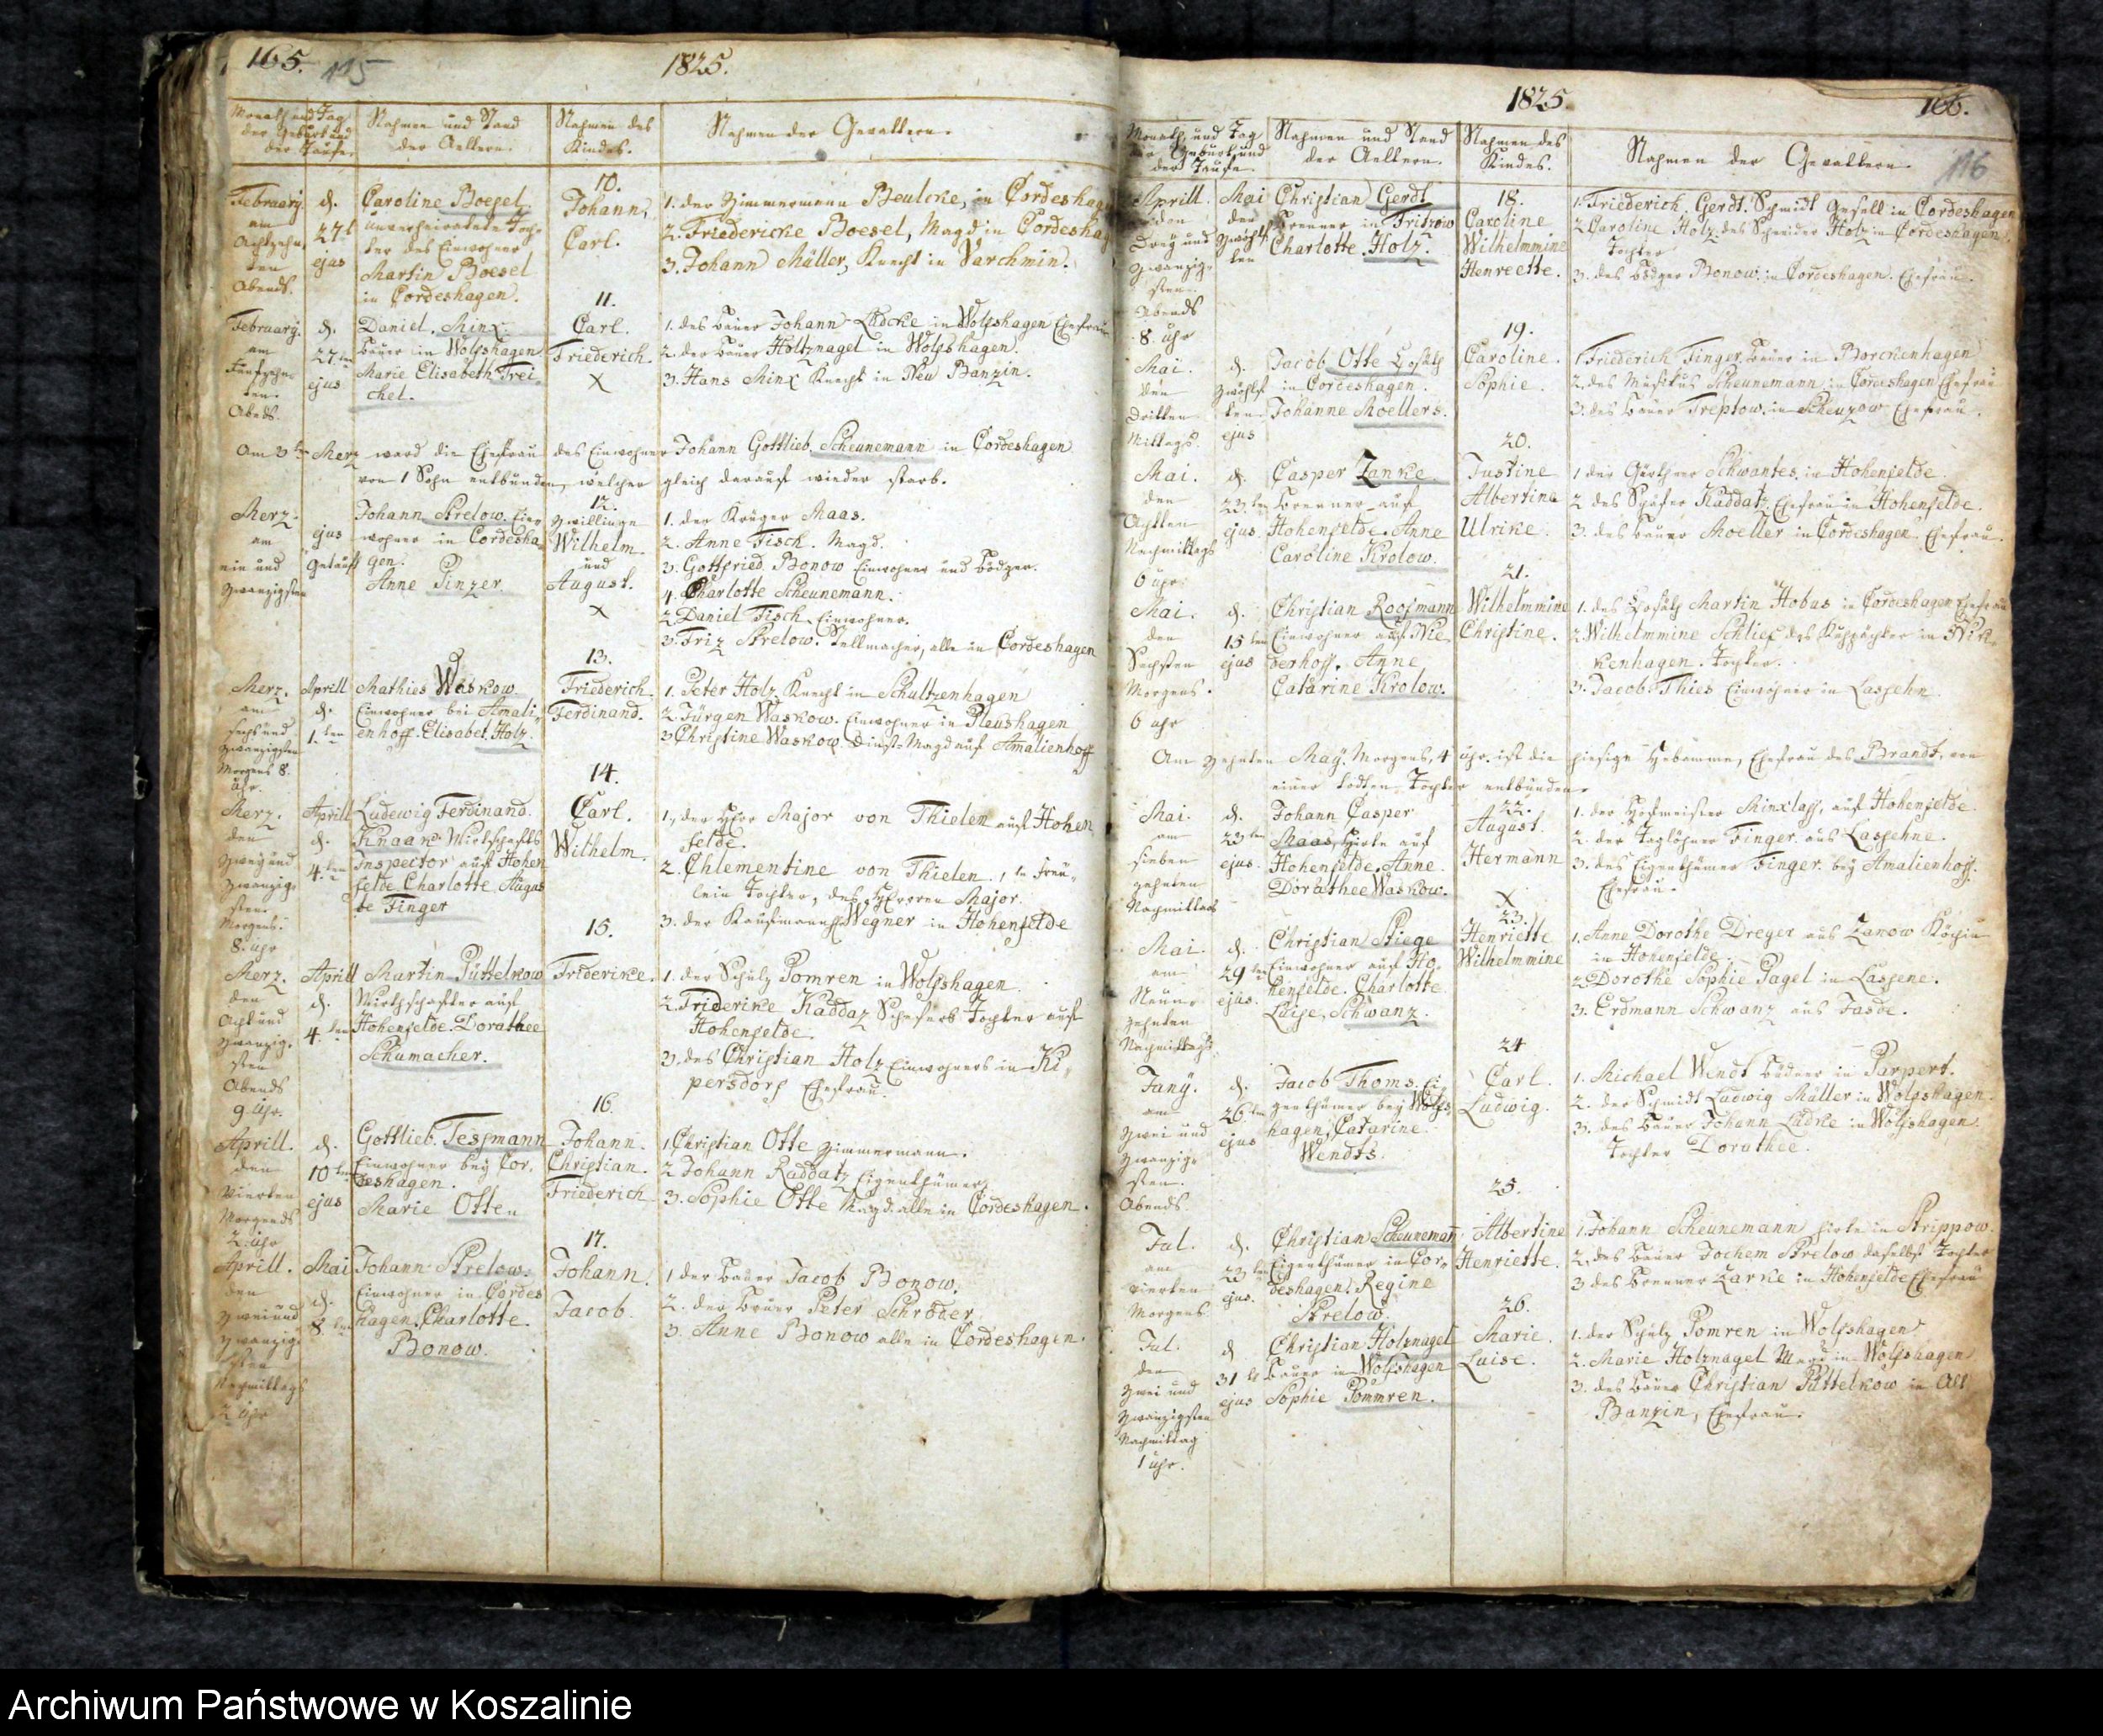 165.
115
1825.
Monath und Tag
der Geburt und
der Taufe.
Nahmen und Stand
der Aeltern.
Nahmen des
Kindes.
Nahmen der Gevattern.
10.
February.
am
Achtzehn
ten
Abends.
d.
27t
ejus
Caroline Boesel.
unverheiratete Toch-
ter des Einwohner
Martin Boesel
in Cordeshagen.
Johann,
Carl.
1. der Zimmermann Beulcke, in Cordeshag
2. Friedericke Boesel, Magd in Cordesha
3. Johann Müller, Knecht in Varchmin.
11.
February.
am
Funfzehn
ten.
Abeds.
d.
27.ten
ejus
Daniel. Minx.
Bauer in Wolfshagen
Marie Elisabeth Trei-
chel.
Carl.
Friederich.
X
1. des Bauer Johann Lüdcke in Wolfshagen Ehefrau
2. der Bauer Holtznagel in Wolfshagen.
3. Hans Minx Knecht in Neu Banzin.
Am 3ten Merz ward die Ehefrau des Einwohner Johann Gottlieb Scheunemann in Cordeshagen
von 1 Sohn entbunden, welcher gleich darauf wieder starb.
12.
Merz.
am
ein und
zwanzigsten
ejus
getauft
Johann Strelow. Ein-
wohner in Cordesha
gen.
Anne Pinzer
Zwillinge
Wilhelm.
und
August.
X
1. der Krüger Maas.
2. Anne Fisch. Magd.
3. Gottfried Bonow Einwohner und Bödger.
4. Charlotte Scheunemann.
2 Daniel Fisch Einwohner.
3. Friz Strelow. Stellmacher, alle in Cordeshagen
13.
Merz.
am
sechs und
zwanzigsten
Morgens 8.
Uhr.
Aprill
d.
1.ten
Mathies Waskow.
Einwohner bei Amali-
enhoff. Elisabet Holz.
Friederich.
Ferdinand.
1. Peter Holz Knecht in Schultzenhagen
2. Jürgen Waskow. Einwohner in Pleushagen
3 Christine Waskow Dienst-Magd auf Amalienhoff
14.
Merz.
den
Zwey und
zwanzig-
sten.
Morgens.
8. Uhr
Aprill
d.
4.ten
Ludewig Ferdinand.
Knaak Wirtschafts
Inspector auf Hohen
felde. Charlotte Augus
te Finger
Carl.
Wilhelm.
1, der Herr Major von Thielen auf Hohen
felde.
2. Chlementine von Thielen, 1te Freu-
lein Tochter, des Herren Major.
3. der Kaufmann Wegner in Hohenfelde
15.
Merz.
den
Acht und
zwanzig-
sten
Abends
9. Uhr.
Aprill
d.
4.ten
Martin Püttelkow
Wirthschafter auf
Hohenfelde. Dorathee
Schumacher.
Friderike.
1. der Schulz Pomren in Wolfshagen
2. Friderike Kaddaz Schefers Tochter auf
Hohenfelde.
3. des Christian Holz Einwohners in Ki-
persdorf Ehefrau.
16.
Aprill.
den
Vierten
Morgends
2. Uhr
d.
10ten
ejus
Gottlieb. Tessmann
Einwohner bey Cor-
deshagen.
Marie Otten
Johann
Christian.
Friederich
1, Christian Otte Zimmermann.
2 Johann Raddatz Eigenthümer,
3. Sophie Otte Magd. alle in Cordeshagen.
17.
Aprill.
den
Zwei und
zwanzig-
sten
Nachmittags
2 Uhr
Mai
d.
8.ten
Johann Strelow.
Einwohner in Cordes
hagen. Charlotte.
Bonow.
Johann.
Jacob.
1 der Bauer Jacob Bonow.
2. der Bauer Peter Schröder,
3. Anne Bonow alle in Cordeshagen.
1825.
166.
116
Monath, und Tag
der Geburt und
der Taufe.
Nahmen und Stand
der Aeltern.
Nahmen des
Kindes.
Nahmen der Gevattern.
18.
Aprill.
den
Drey und
zwanzig-
sten.
Abends
8. Uhr
Mai
der
Zwölf
ten
Christian Gerdt
Brenner in Fritzow
Charlotte. Holz.
Caroline
Wilhelmmine
Henreette.
1. Friederich. Gerdt. Schmidt Gesell in Cordeshagen
2 Caroline Holz des Schneider Holz in Cordeshagen.
Tochter
3. des Bödger Bonow. in Cordeshagen. Ehefrau.
19.
Mai.
den
Dritten
Mittags.
d.
Zwölf
ten
ejus
Jacob Otte Cossäth
in Cordeshagen.
Johanne Moellers.
Caroline.
Sophie.
1. Friederich Finger, Bauer in Borckenhagen
2. des Musikus Scheunemann in Cordeshagen Ehefrau
3. des Bauer Treptow. in Scheuzow Ehefrau.
20.
Mai.
den
Achten
Nachmittags
6 Uhr.
d.
23ten
ejus
Casper Zanke.
Brenner auf
Hohenfelde. Anne
Caroline Krolow.
Justine
Albertine
Ulrike.
1 der Gärthner Schwantes. in Hohenfelde.
2 des Schäfer Kaddatz Ehefrau in Hohenfelde.
3. des Bauer Moeller in Cordeshagen. Ehefrau.
21.
Mai.
den
Sechsten
Morgens.
6 uhr
d.
15ten
ejus
Christian Roofmann
Einwohner auf Nie-
derhoff. Anne
Catarine Krolow.
Wilhelmmine
Christine.
1. des Cossäth Martin Hobus in Cordeshagen Ehefrau
2. Wilhelmmine Schlief des Kuhpächter in Nik-
kenhagen. Tochter.
3. Jacob. Thies Einwohner in Lassehn
Am zehnten May. Morgens, 4 Uhr. ist die hiesige Hebamme, Ehefrau des Brandt, von
einer todten Tochter entbunden.
22.
Mai.
am
sieben
zehnten
Nachmittags
d.
23ten
ejus.
Johann Casper
Maas, Hirte auf
Hohenfelde. Anne
Dorathee Waskow.
August.
Hermann
X
1. der Hofmeister Minxlaff, auf Hohenfelde.
2. der Taglöhner Finger. aus Lassehne.
3. des Eigenthümer Finger. bey Amalienhoff.
Ehefrau.
23.
Mai.
am
Neun-
zehnten
Nachmittags.
d.
29ten
ejus.
Christian Stiege
Einwohner auf Ho-
henfelde. Charlotte
Luise, Schwanz.
Henriette
Wilhelmmine
1. Anne Dorothe Dreger aus Zanow Köchin
in Hohenfelde.
2 Dorothe Sophie Pagel in Lassene.
3. Erdmann Schwanz aus Jasde.
24
Juny.
am
Zwei und
zwanzig-
sten.
Abends
d.
26ten
ejus
Jacob Thoms. Ei-
genthümer bey Wolfs-
hagen, Catarine
Wendts.
Carl.
Ludwig.
1. Michael Wendt Büdner in Parpert.
2. der Schmidt Ludwig Müller in Wolfshagen.
3. des Bauer Johann Lüdke in Wolfshagen
Tochter Dorathee.
25.
Jul.
am
vierten
Morgens
d.
23ten
ejus.
Christian Scheunemann
Eigenthümer in Cor-
deshagen. Regine
Strelow.
Albertine
Henriette.
1. Johann Scheunemann Hirte in Strippow.
2, des Bauer Jochem Strelow daselbst Tochter
3 des Brenner Zarke in Hohenfelde Ehefrau
26.
Jul.
den
Zwei und
zwanzigsten
Nachmittag
1 Uhr.
d
31t
ejus
Christian Holznagel
Bauer in Wolfshagen
Sophie Pommren.
Marie.
Luise.
1. der Schulz Pomren in Wolfshagen
2. Marie Holznagel Magd in Wolfshagen
3. des Bauer Christian Püttelkow in Alt
Banzin, Ehefrau.
Archiwum Państwowe w Koszalinie